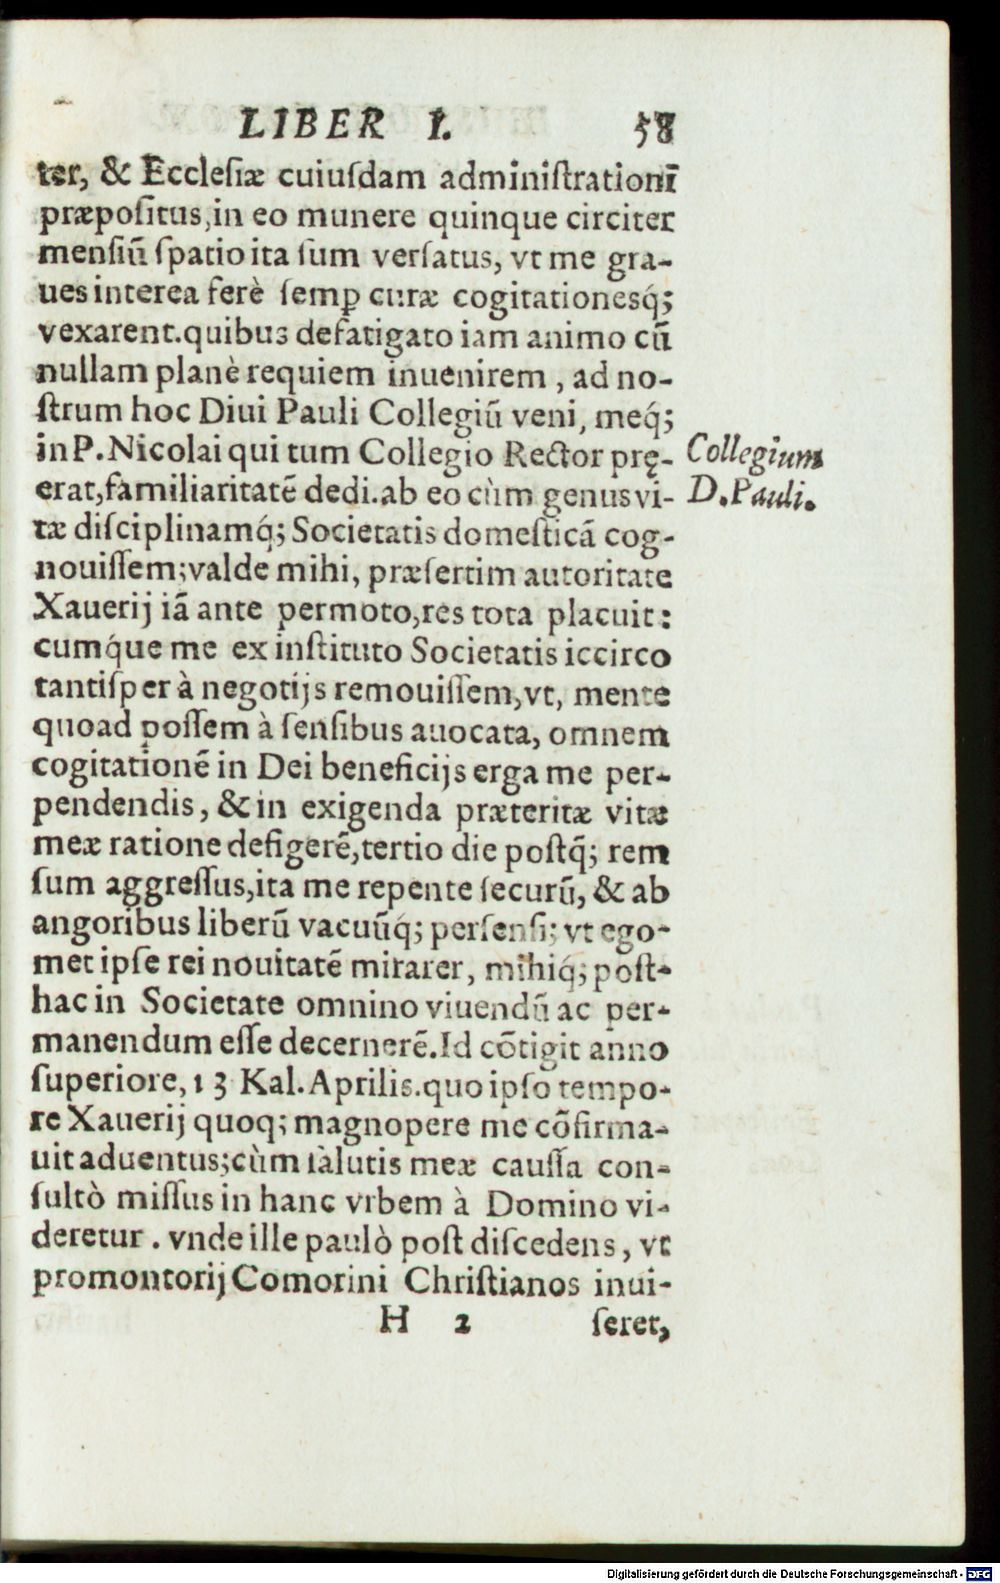 LIBER I. 58
ter, & Ecclesiæ cuiuſdam adminiſtrationī
præpoſitus, in eo munere quinque circiter
menſiū ſpatio ita ſum verſatus, vt me gra-
ues interea ferè ſemꝑ curæ cogitationesq́;
vexarent. quibus defatigato iam animo cū
nullam planè requiem inuenirem, ad no-
ſtrum hoc Diui Pauli Collegiū veni, meq́;
in P. Nicolai qui tum Collegio Rector prę-
erat, familiaritatē dedi. ab eo cùm genus vi-
tæ diſciplinamq́; Societatis domeſticā cog-
nouiſſem; valde mihi, præſertim autoritate
Xauerij iā ante permoto, res tota placuit:
cumq́ue me ex inſtituto Societatis iccirco
tantiſper à negotijs remouiſſem, vt, mente
quoad poſſem à ſenſibus auocata, omnem
cogitationē in Dei beneficijs erga me per-
pendendis, & in exigenda præteritæ vitæ
meæ ratione defigerē, tertio die poſtq̄; rem
ſum aggreſſus, ita me repente ſecurū, & ab
angoribus liberū vacuūq́; perſenſi; vt ego-
met ipſe rei nouitatē mirarer, mihiq́; poſt-
hac in Societate omnino viuendū ac per-
manendum eſſe decernerē. Id cōtigit anno
ſuperiore, 13 Kal. Aprilis. quo ipſo tempo-
re Xauerij quoq; magnopere me cōfirma-
uit aduentus; cùm ſalutis meæ cauſſa con-
ſultò miſſus in hanc vrbem à Domino vi-
deretur. vnde ille paulò poſt diſcedens, vt
promontorij Comorini Chriſtianos inui-
H 2 ſeret,
Collegium
D. Pauli.
Digitalisierung gefördert durch die Deutsche Forschungsgemeinschaft - DFG